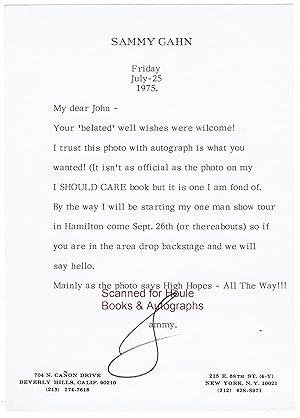 SAMMY CAHN
Friday
July-25
1975.
My dear John -
Your 'belated' well wishes were wilcome!
I trust this photo with autograph is what you
wanted! (It isn't as official as the photo on my
I SHOULD CARE book but it is one I am fond of.
By the way I will be starting my one man show tour
in Hamilton come Sept. 26th (or thereabouts) so if
you are in the area drop backstage and we will
say hello.
Mainly as the photo says High Hopes - All The Way!!!
Scanned for Houle
Books & Autographs
ammy.
704 N. CAÑON DRIVE
BEVERLY HILLS, CALIF. 90210
(213) 274-7616
215 E. 68TH ST. (4-Y)
NEW YORK, N.Y. 10021
(212) 628-8971